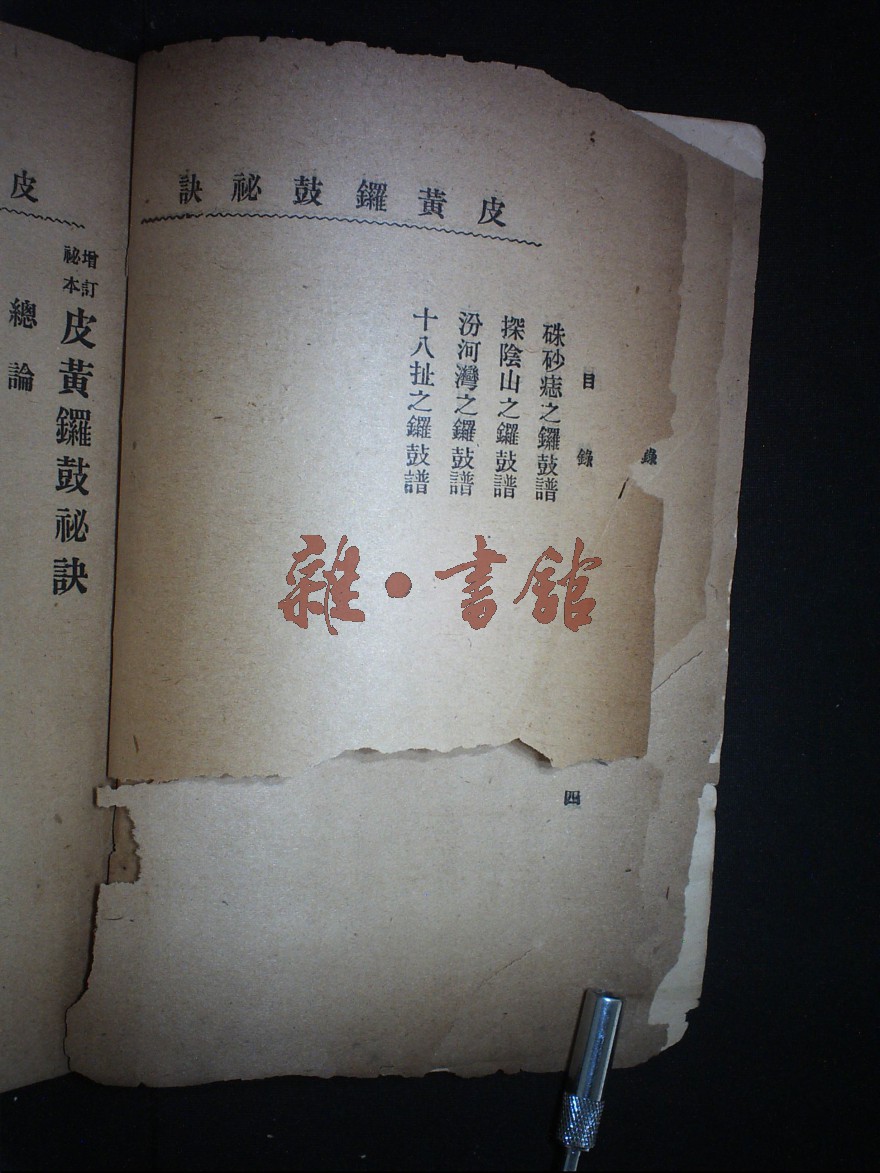 皮黃鑼鼓祕訣
目錄
硃砂痣之鑼鼓譜
探陰山之鑼鼓譜
汾河灣之鑼鼓譜
十八扯之鑼鼓譜
四
錄
雜·書館
皮
增訂
祕本
皮黃鑼鼓祕訣
總論